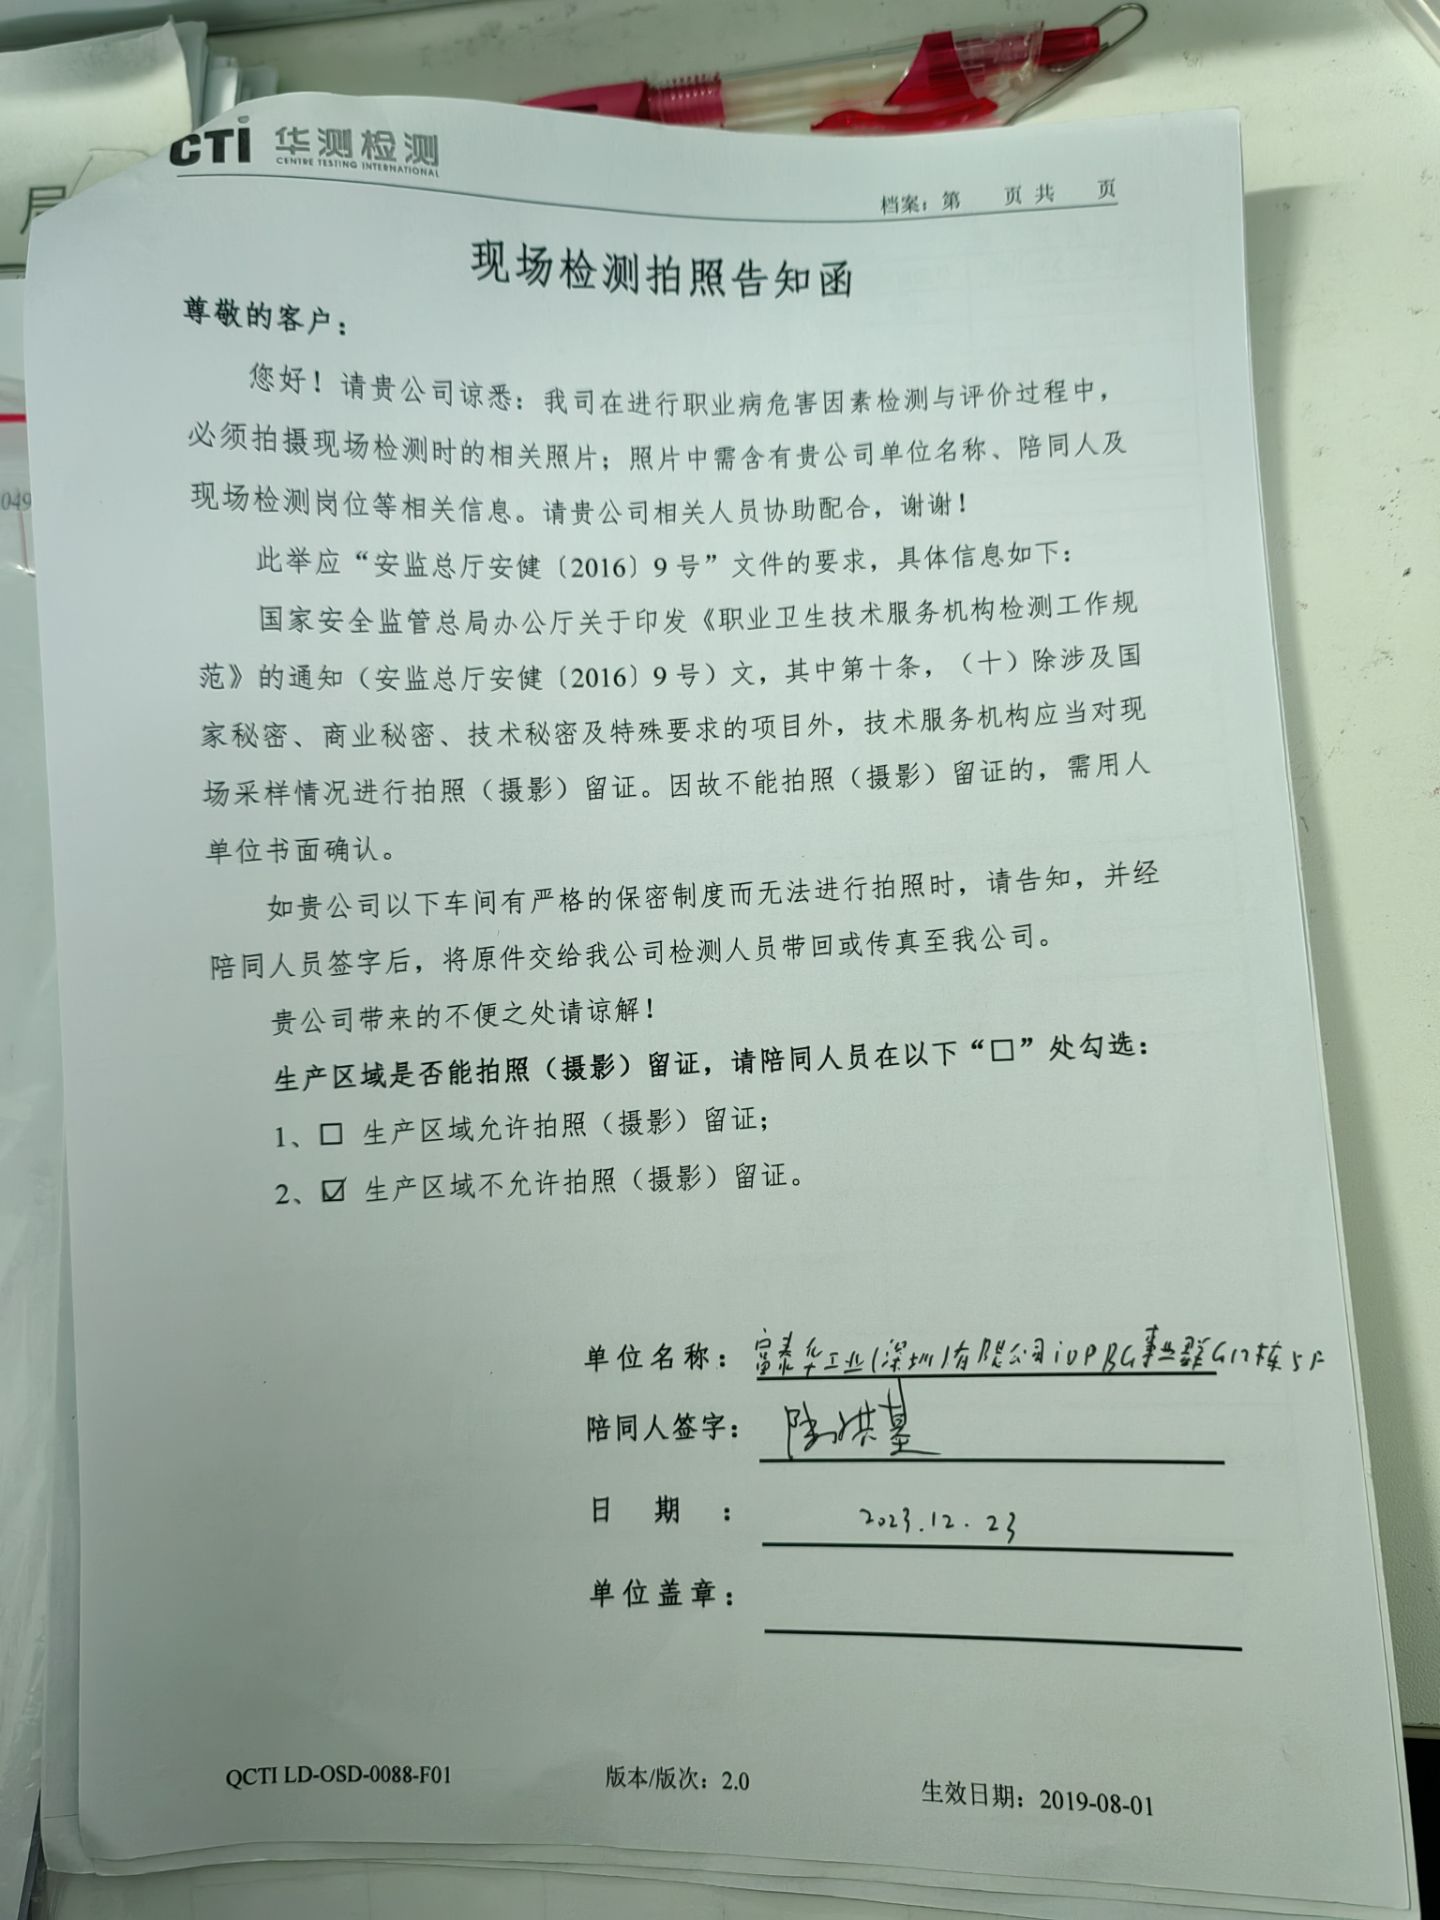 CTI 华测检测
CENTRE TESTING INTERNATIONAL
档案：第 页 共 页
现场检测拍照告知函
尊敬的客户：
您好！请贵公司谅悉：我司在进行职业病危害因素检测与评价过程中，
必须拍摄现场检测时的相关照片；照片中需含有贵公司单位名称、陪同人及
现场检测岗位等相关信息。请贵公司相关人员协助配合，谢谢！
此举应“安监总厅安健〔2016〕9 号”文件的要求，具体信息如下：
国家安全监管总局办公厅关于印发《职业卫生技术服务机构检测工作规
范》的通知（安监总厅安健〔2016〕9 号）文，其中第十条，（十）除涉及国
家秘密、商业秘密、技术秘密及特殊要求的项目外，技术服务机构应当对现
场采样情况进行拍照（摄影）留证。因故不能拍照（摄影）留证的，需用人
单位书面确认。
如贵公司以下车间有严格的保密制度而无法进行拍照时，请告知，并经
陪同人员签字后，将原件交给我公司检测人员带回或传真至我公司。
贵公司带来的不便之处请谅解！
生产区域是否能拍照（摄影）留证，请陪同人员在以下“□”处勾选：
1、□ 生产区域允许拍照（摄影）留证；
2、☑ 生产区域不允许拍照（摄影）留证。
单位名称：富泰华工业(深圳)有限公司iDPBG事业群G12栋5F
陪同人签字：
日期：2023.12.23
单位盖章：
QCTI LD-OSD-0088-F01 版本/版次：2.0 生效日期：2019-08-01